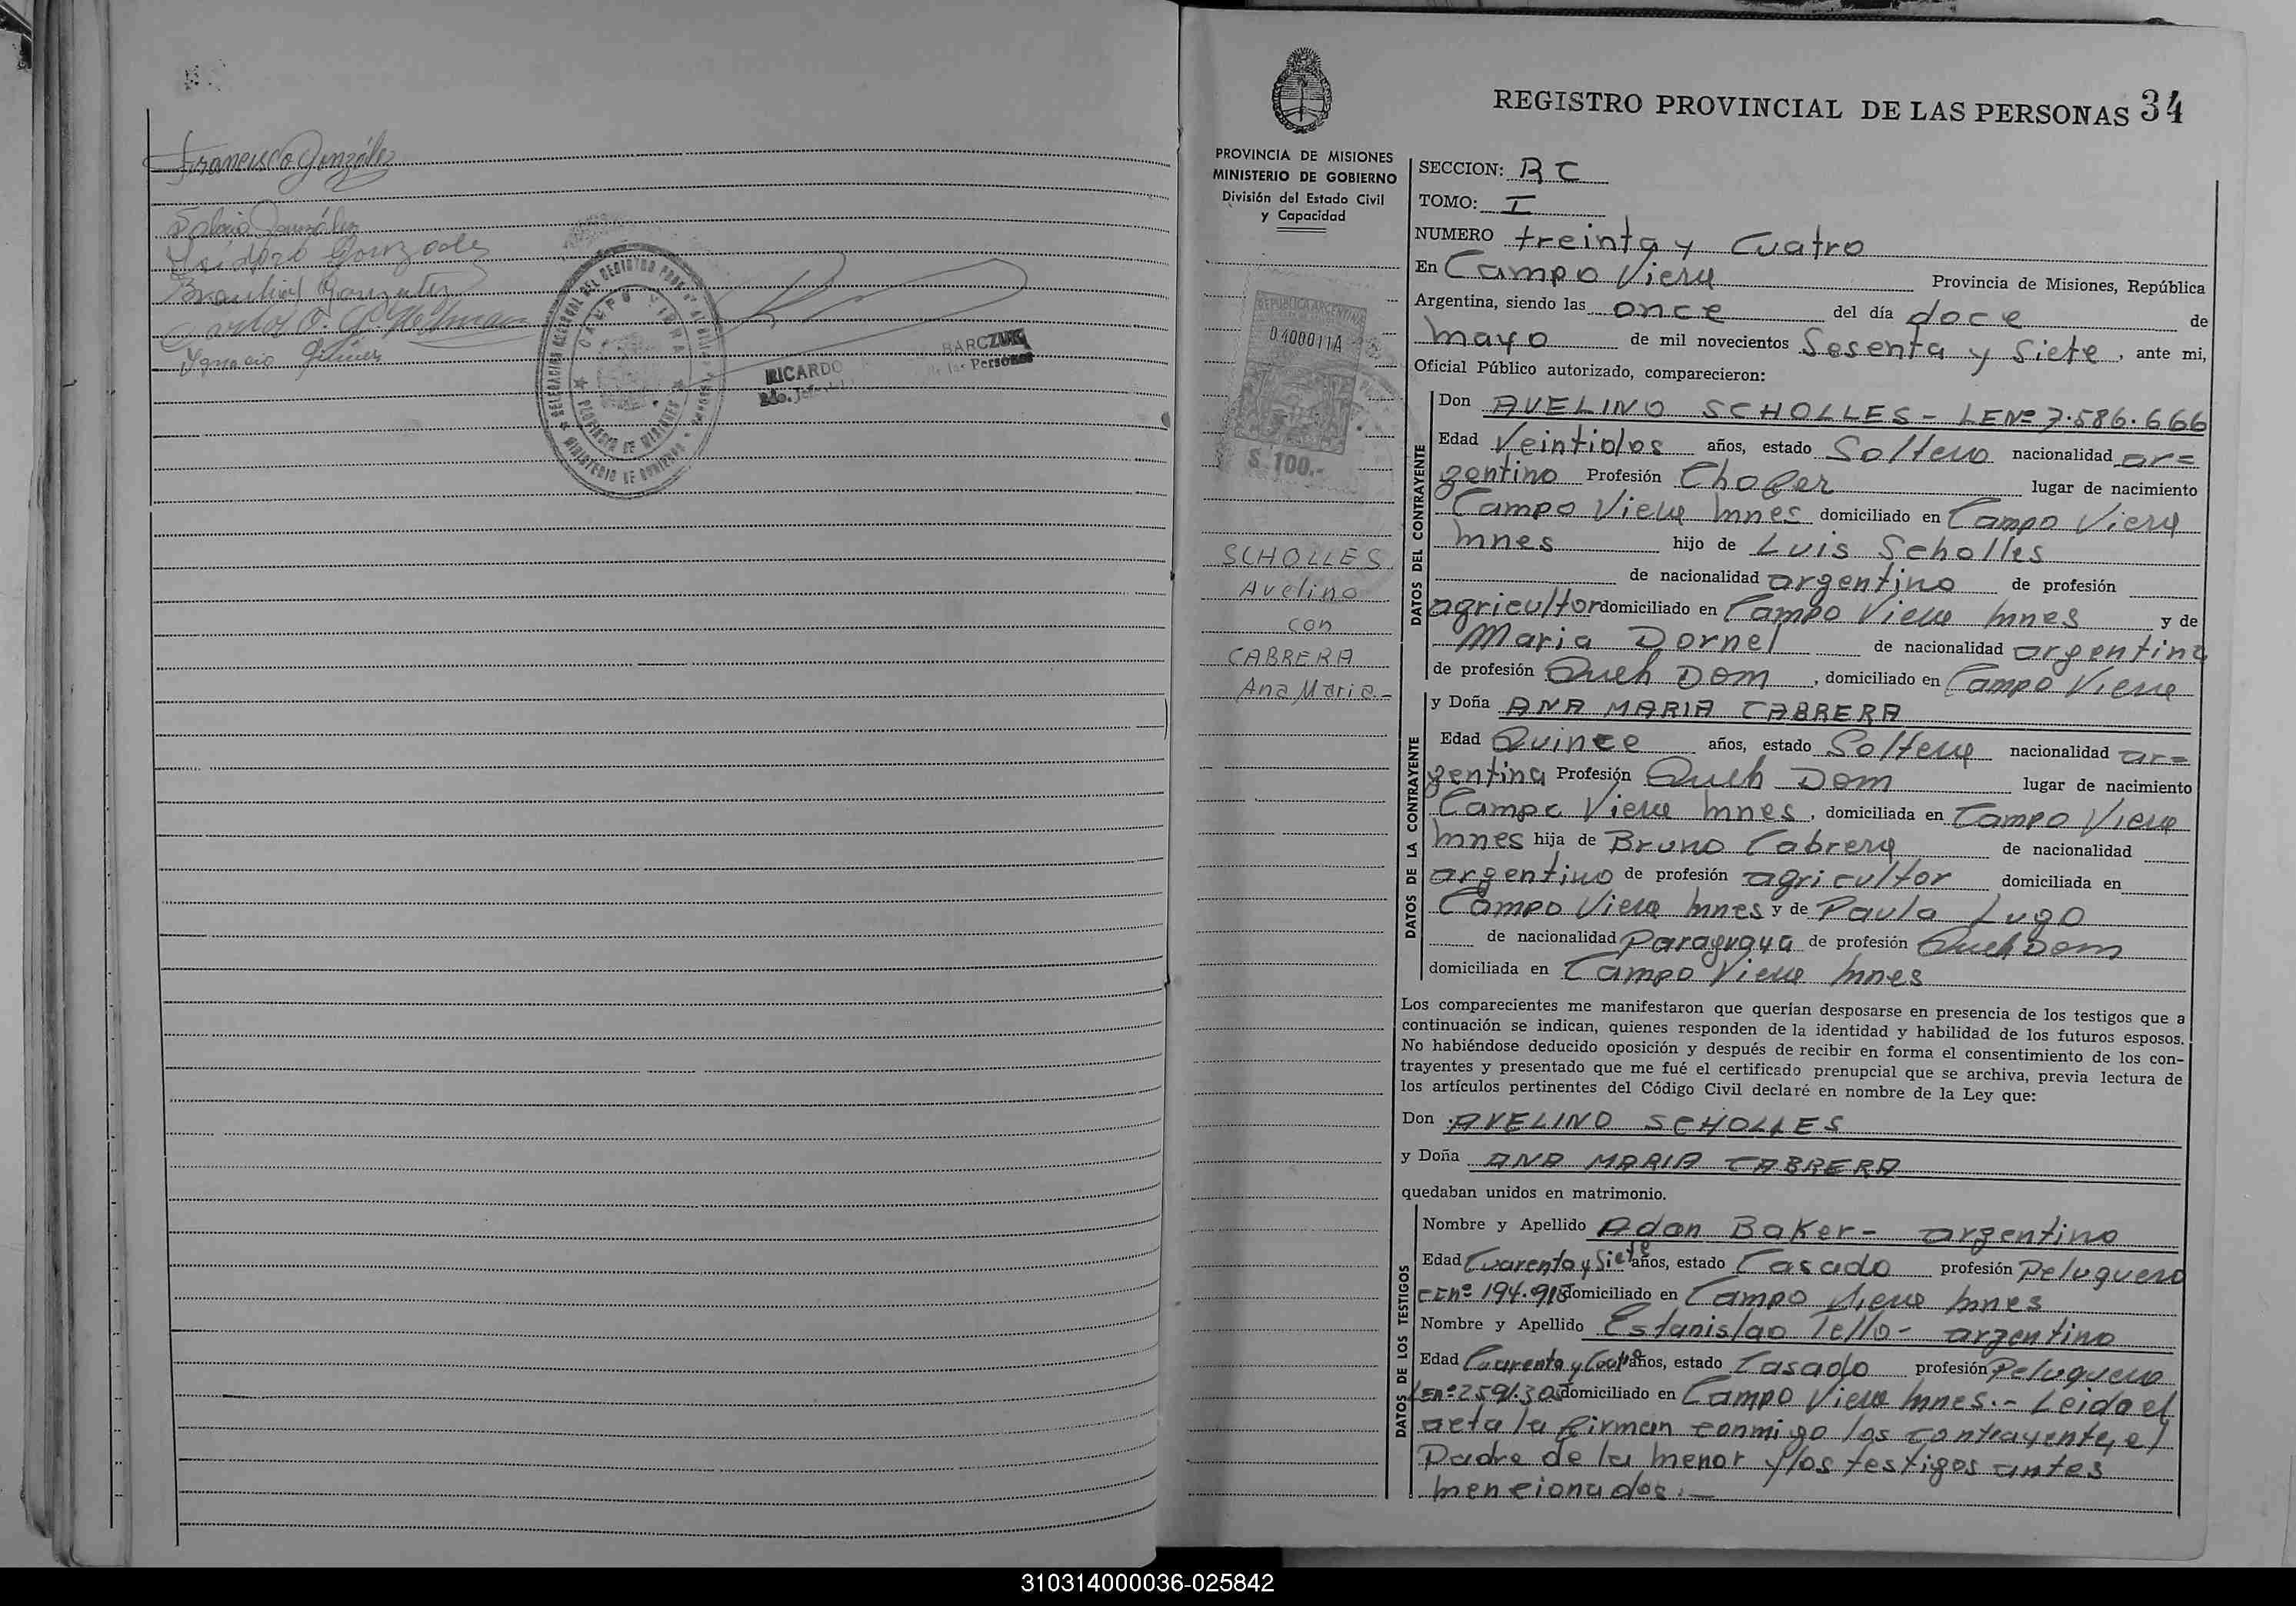 Francisco González
González
Isidoro Gonzalez
González
Ignacio Giménez
DELEGACION SECCIONAL DEL REGISTRO PROV. DE LAS PERSONAS
CAMPO VIERA
PROVINCIA DE MISIONES
MINISTERIO DE GOBIERNO
RICARDO BARCZUK
de las Personas
REGISTRO PROVINCIAL DE LAS PERSONAS 34
PROVINCIA DE MISIONES
MINISTERIO DE GOBIERNO
División del Estado Civil
y Capacidad
REPUBLICA ARGENTINA
0400011A
$ 100.-
SCHOLLES
Avelino
con
CABRERA
Ana Maria.-
SECCION: RC
TOMO: I
NUMERO treinta y Cuatro
En Campo Viera Provincia de Misiones, República
Argentina, siendo las once del día doce de
mayo de mil novecientos Sesenta y Siete, ante mi,
Oficial Público autorizado, comparecieron:
DATOS DEL CONTRAYENTE
Don AVELINO SCHOLLES - LENº 7.586.666
Edad Veintidos años, estado Soltero nacionalidad ar=
gentino Profesión Chofer lugar de nacimiento
Campo Viera Mnes domiciliado en Campo Viera
Mnes hijo de Luis Scholles
de nacionalidad argentino de profesión
agricultor domiciliado en Campo Viera Mnes y de
Maria Dornel de nacionalidad argentina
de profesión Queh Dom, domiciliado en Campo Viera
DATOS DE LA CONTRAYENTE
y Doña ANA MARIA CABRERA
Edad Quince años, estado Soltera nacionalidad ar=
gentina Profesión Queh Dom lugar de nacimiento
Campo Viera Mnes, domiciliada en Campo Viera
Mnes hija de Bruno Cabrera de nacionalidad
argentino de profesión agricultor domiciliada en
Campo Viera Mnes y de Paula Lugo
de nacionalidad Paraguaya de profesión Queh Dom
domiciliada en Campo Viera Mnes
Los comparecientes me manifestaron que querían desposarse en presencia de los testigos que a
continuación se indican, quienes responden de la identidad y habilidad de los futuros esposos.
No habiéndose deducido oposición y después de recibir en forma el consentimiento de los con-
trayentes y presentado que me fué el certificado prenupcial que se archiva, previa lectura de
los artículos pertinentes del Código Civil declaré en nombre de la Ley que:
Don AVELINO SCHOLLES
y Doña ANA MARIA CABRERA
quedaban unidos en matrimonio.
DATOS DE LOS TESTIGOS
Nombre y Apellido Adan Baker - argentino
Edad Cuarenta y Siete años, estado Casado profesión Peluquero
CInº 194.918 domiciliado en Campo Viera Mnes
Nombre y Apellido Estanislao Tello - argentino
Edad Cuarenta y Cuatro años, estado Casado profesión Peluquero
LEnº domiciliado en Campo Viera Mnes.- Leida el
acta la firman conmigo los contrayente, el
Padre de la menor y los testigos antes
mencionados.-
310314000036-025842